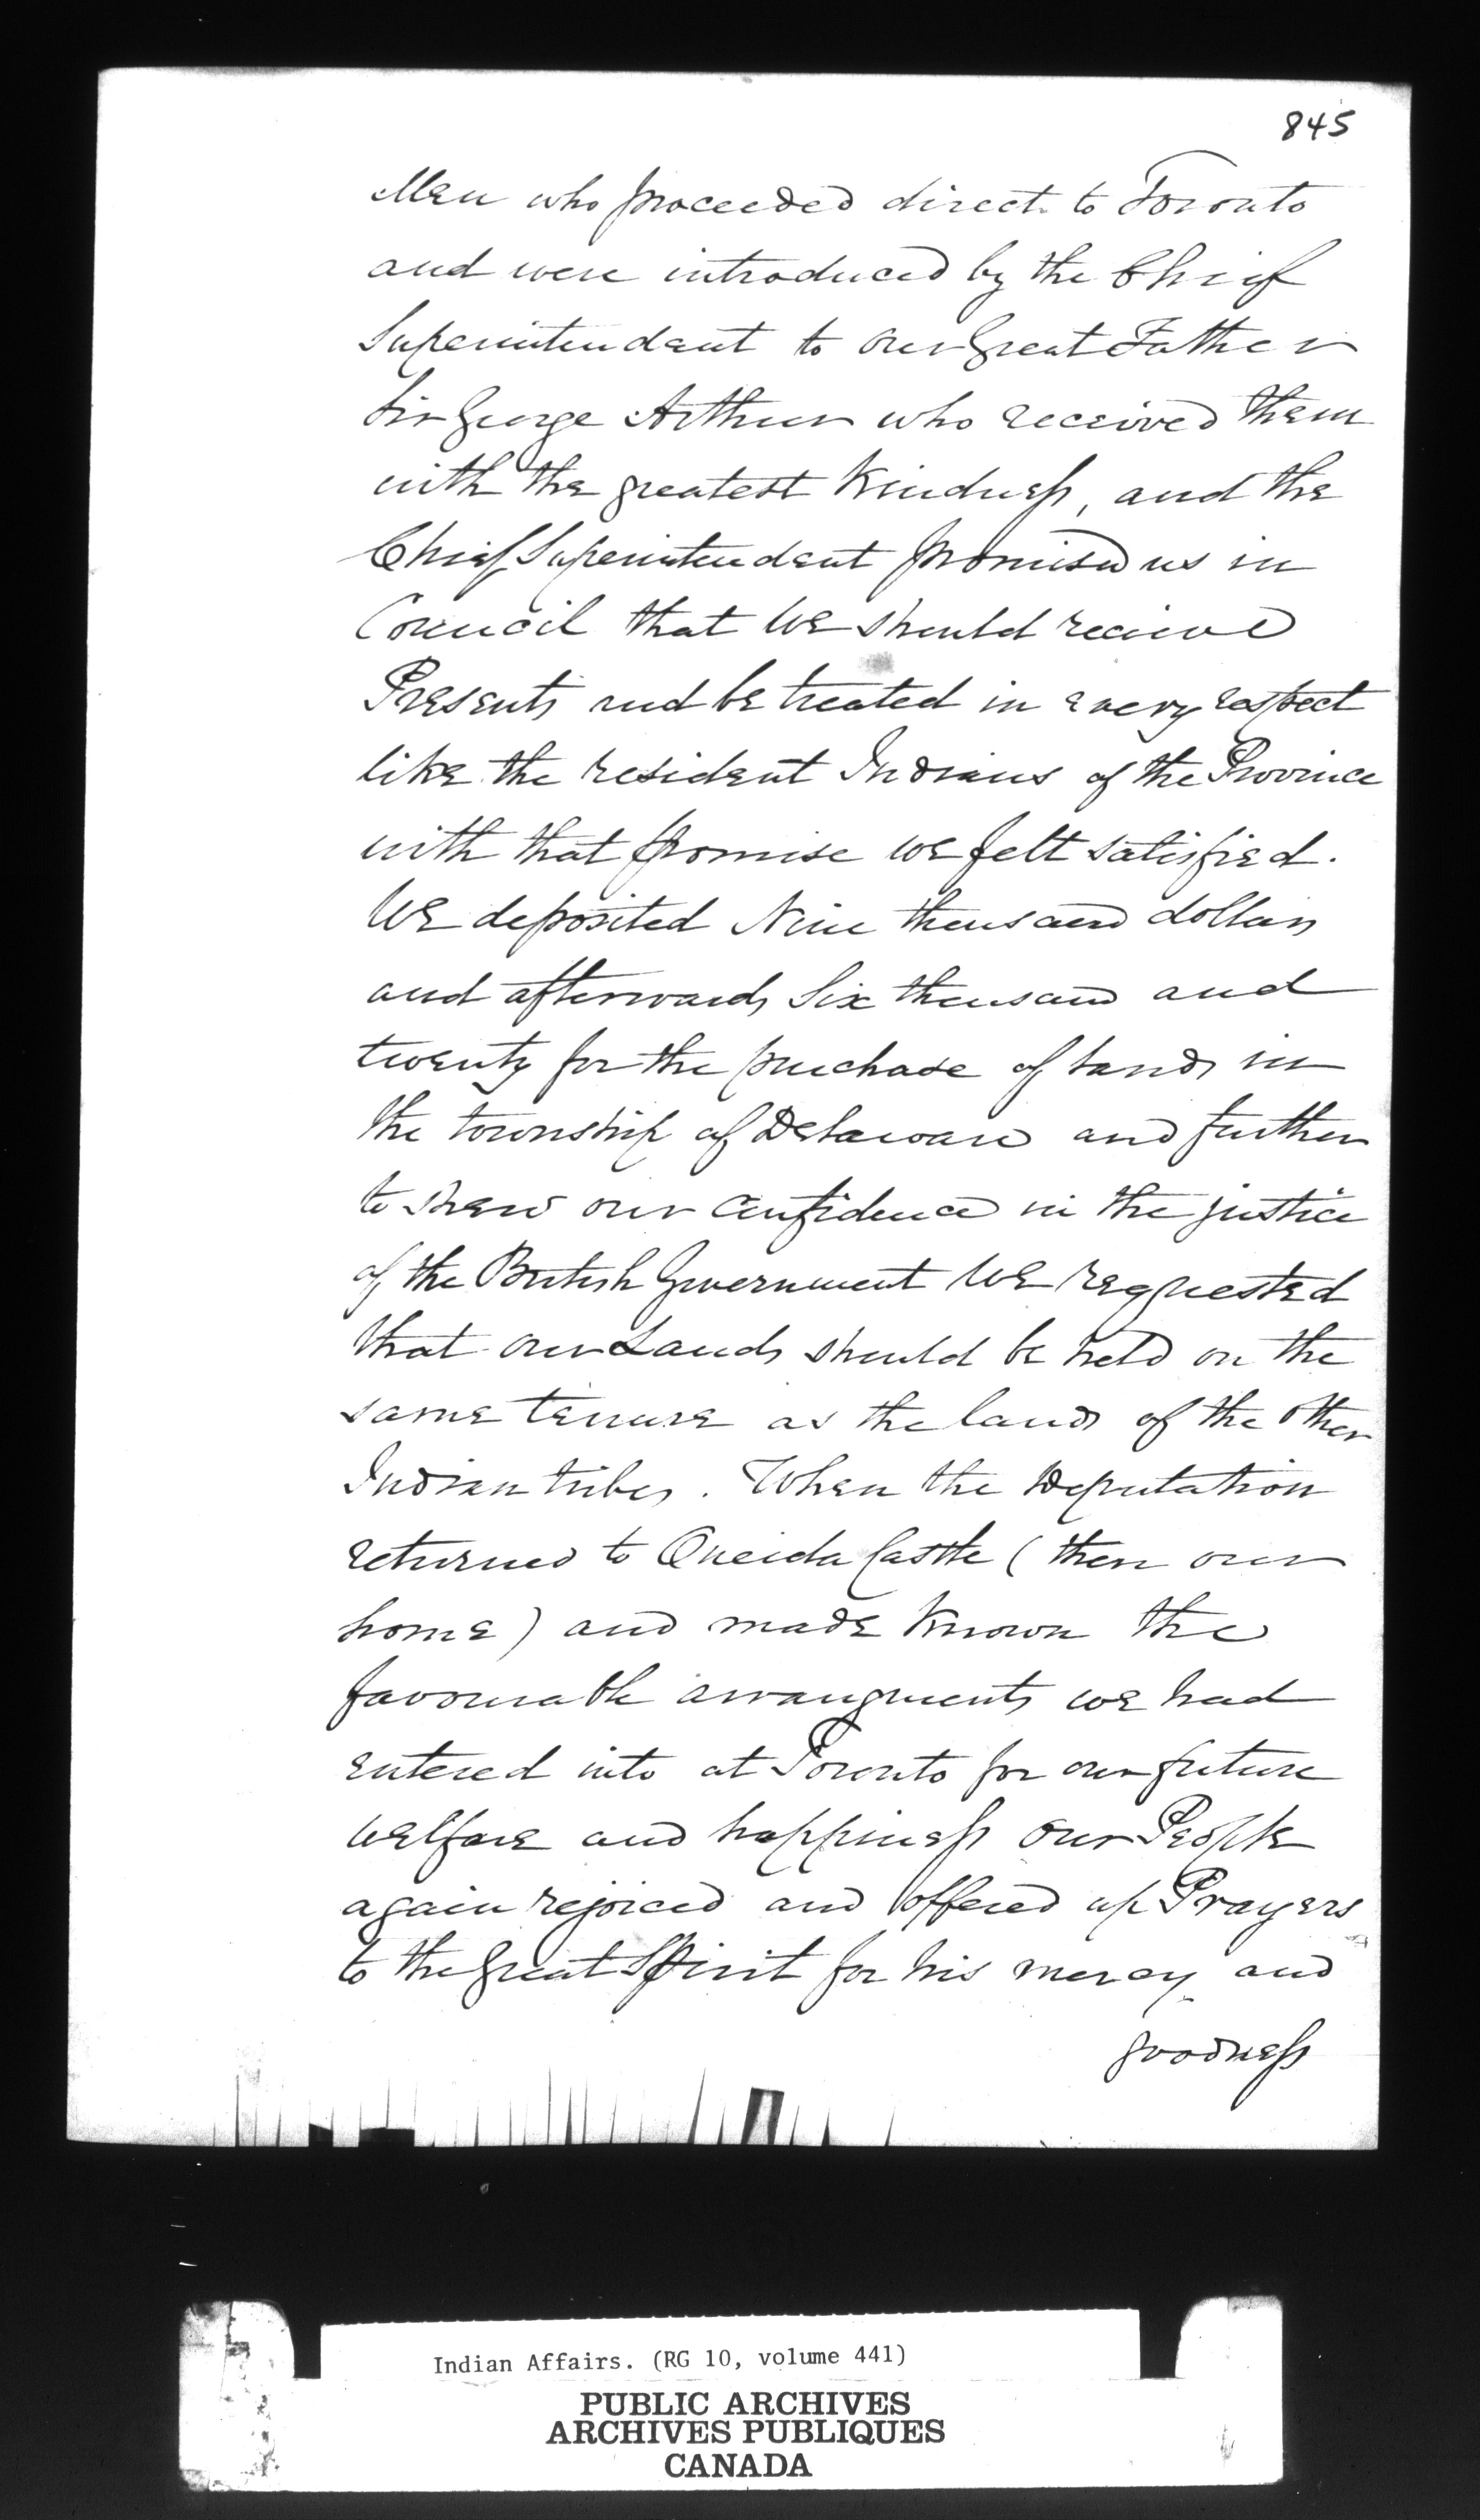 845
Men who proceeded direct to Toronto
and were introduced by the Chief
Superintendant to our Great Father
Sir George Arthur who received them
with the greatest Kindness, and the
Chief Superintendant promised us in
Council that We should recieve
Presents and be treated in every respect
like the resident Indians of the Province
with that promise we felt satisfied.
We deposited Nine thousand dollars
and afterwards Six thousand and
twenty for the purchase of lands in
the township of Delaware and further
to shew our confidence in the justice
of the British Government We requested
that our Lands should be held on the
same tenure as the lands of the other
Indian tribes. When the Deputation
returned to Oneida Castle (then our
home) and made Known the
favourable arrangments we had
entered into at Toronto for our future
welfare and happiness our People
again rejoiced and offered up Prayers
to the Great Spirit for his mercy and
goodness
Indian Affairs. (RG 10, volume 441)
PUBLIC ARCHIVES
ARCHIVES PUBLIQUES
CANADA